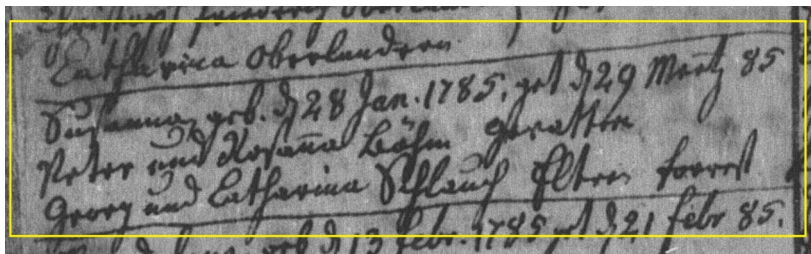 Catharina Oberlendern
Susanna geb. d 28 Jan. 1785. get d 29 Mertz 85
Peter und Rosanna Böhm gevattern
Georg und Catharina Schlauch Eltern
geb d 13 Febr. 1785 get d 21 Febr 85.